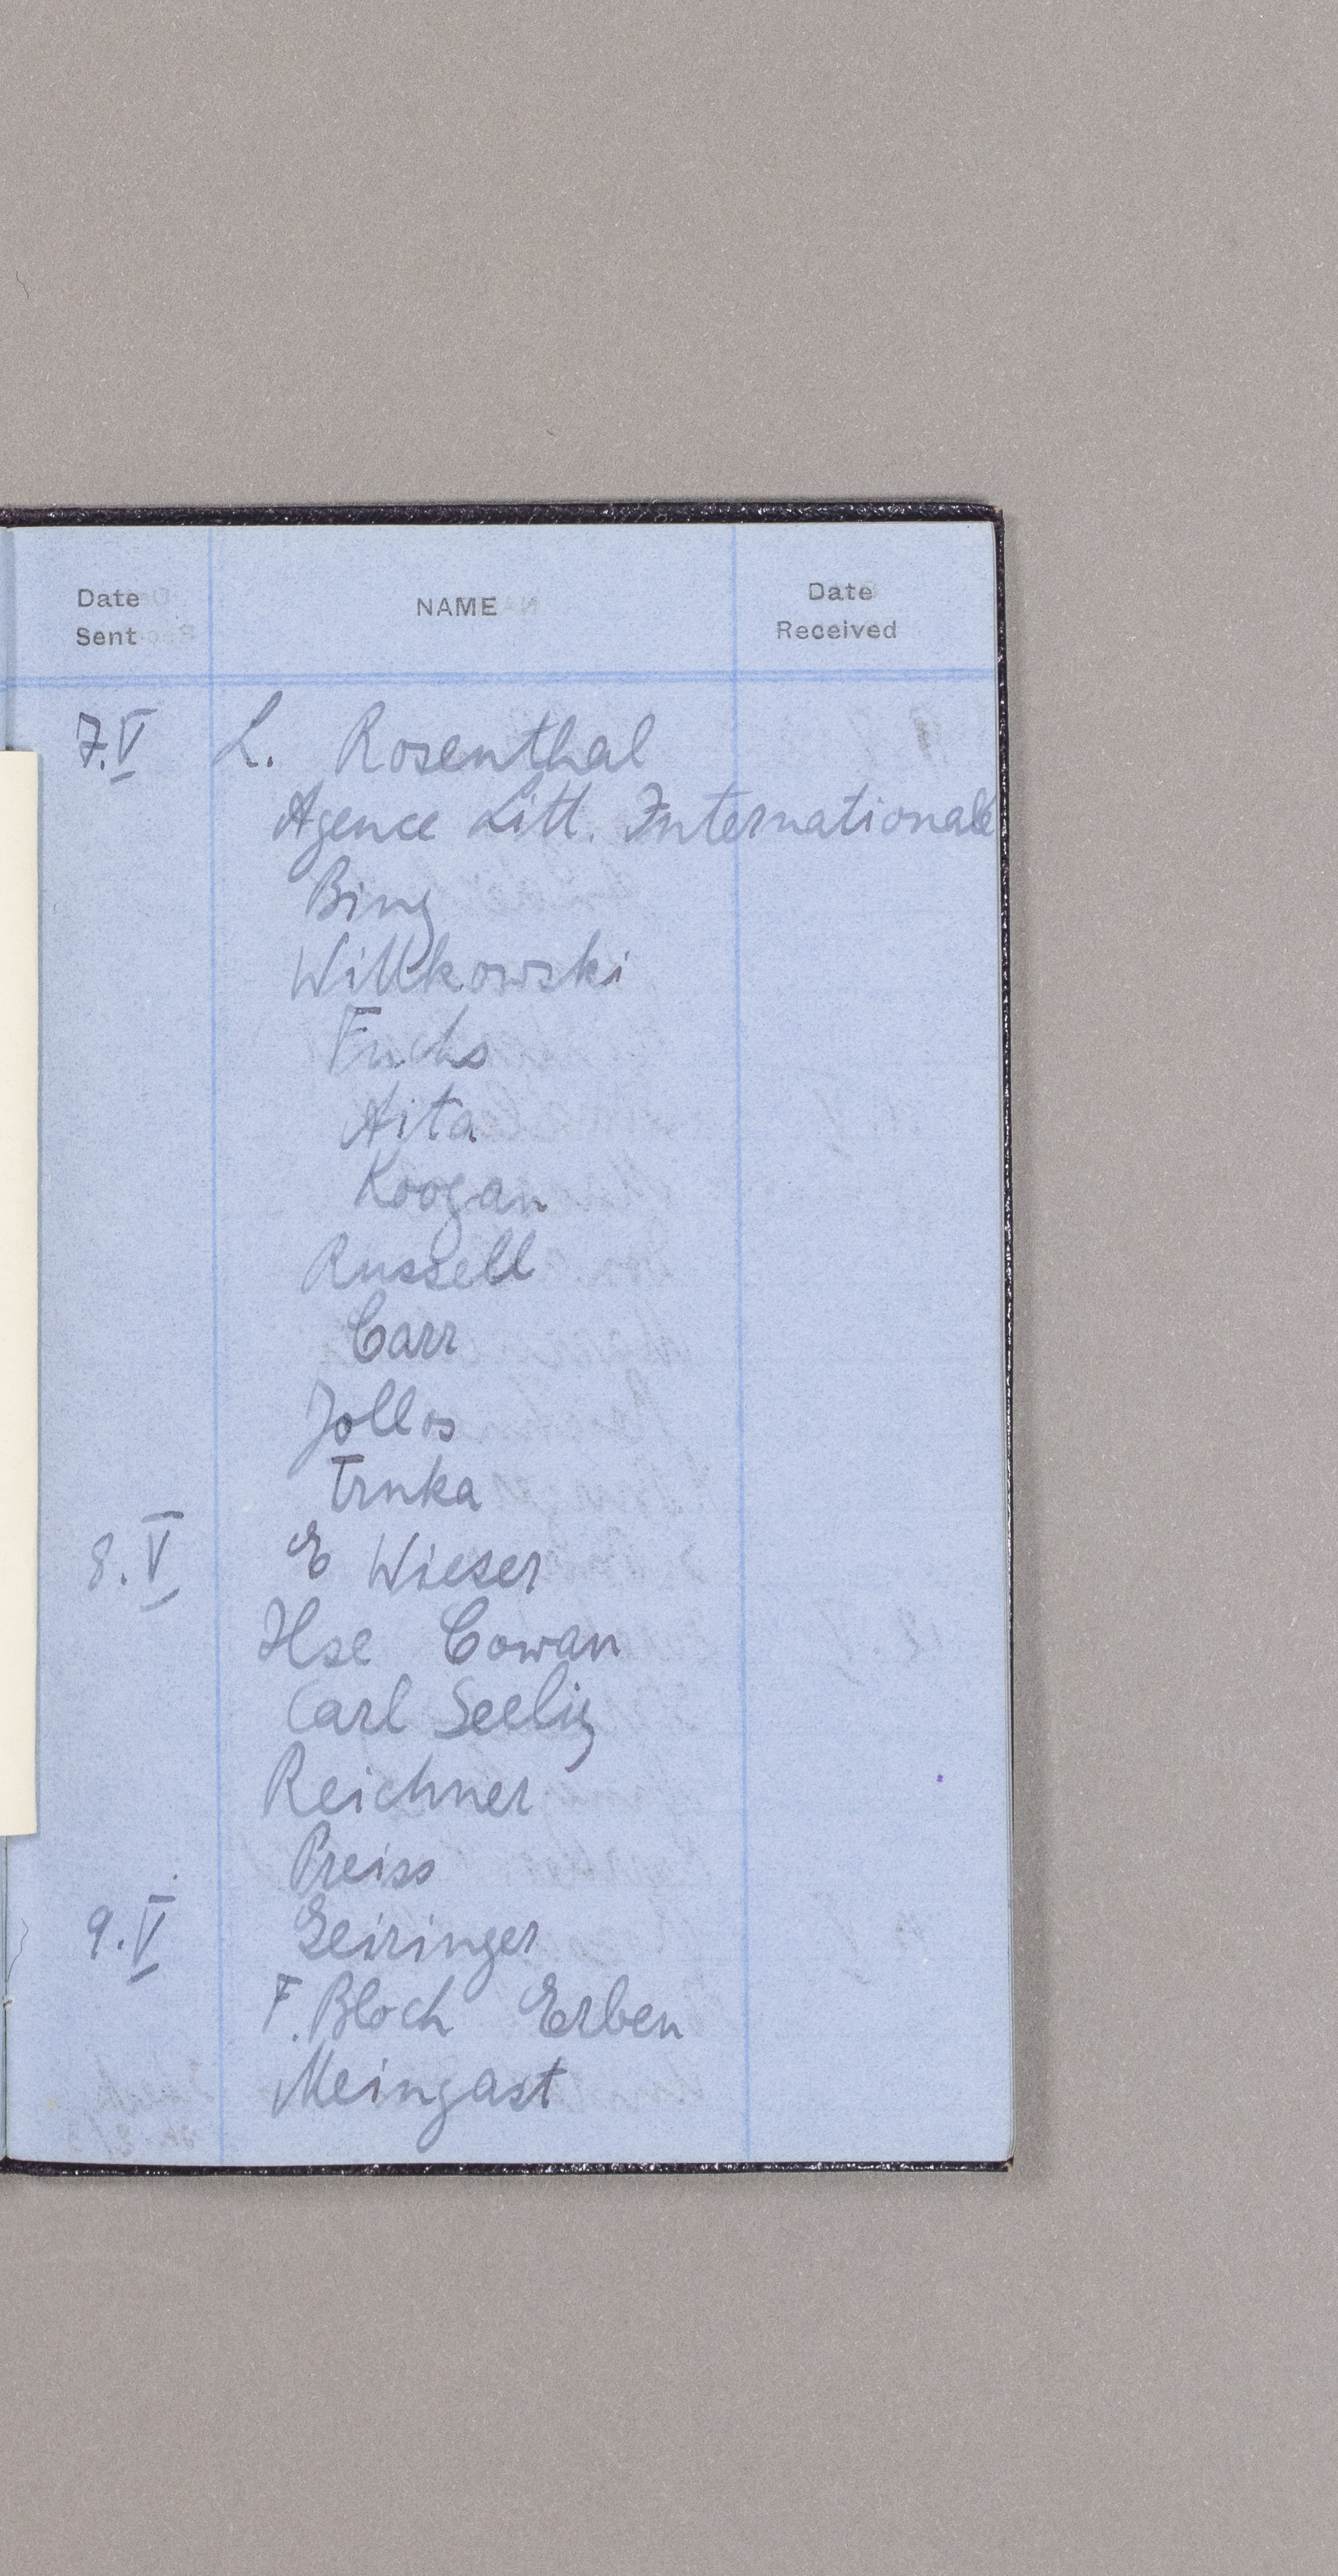 Date Sent NAME Date Received
7.V L. Rosenthal
Agence Litt. Internationale
Bing
Willkowski
Fuchs
Aita
Koogan
Russell
Carr
Jollos
Trnka
8.V E Wieser
Ilse Cowan
Carl Seelig
Reichner
Preiss
9.V Geiringer
F. Bloch Erben
Meingast